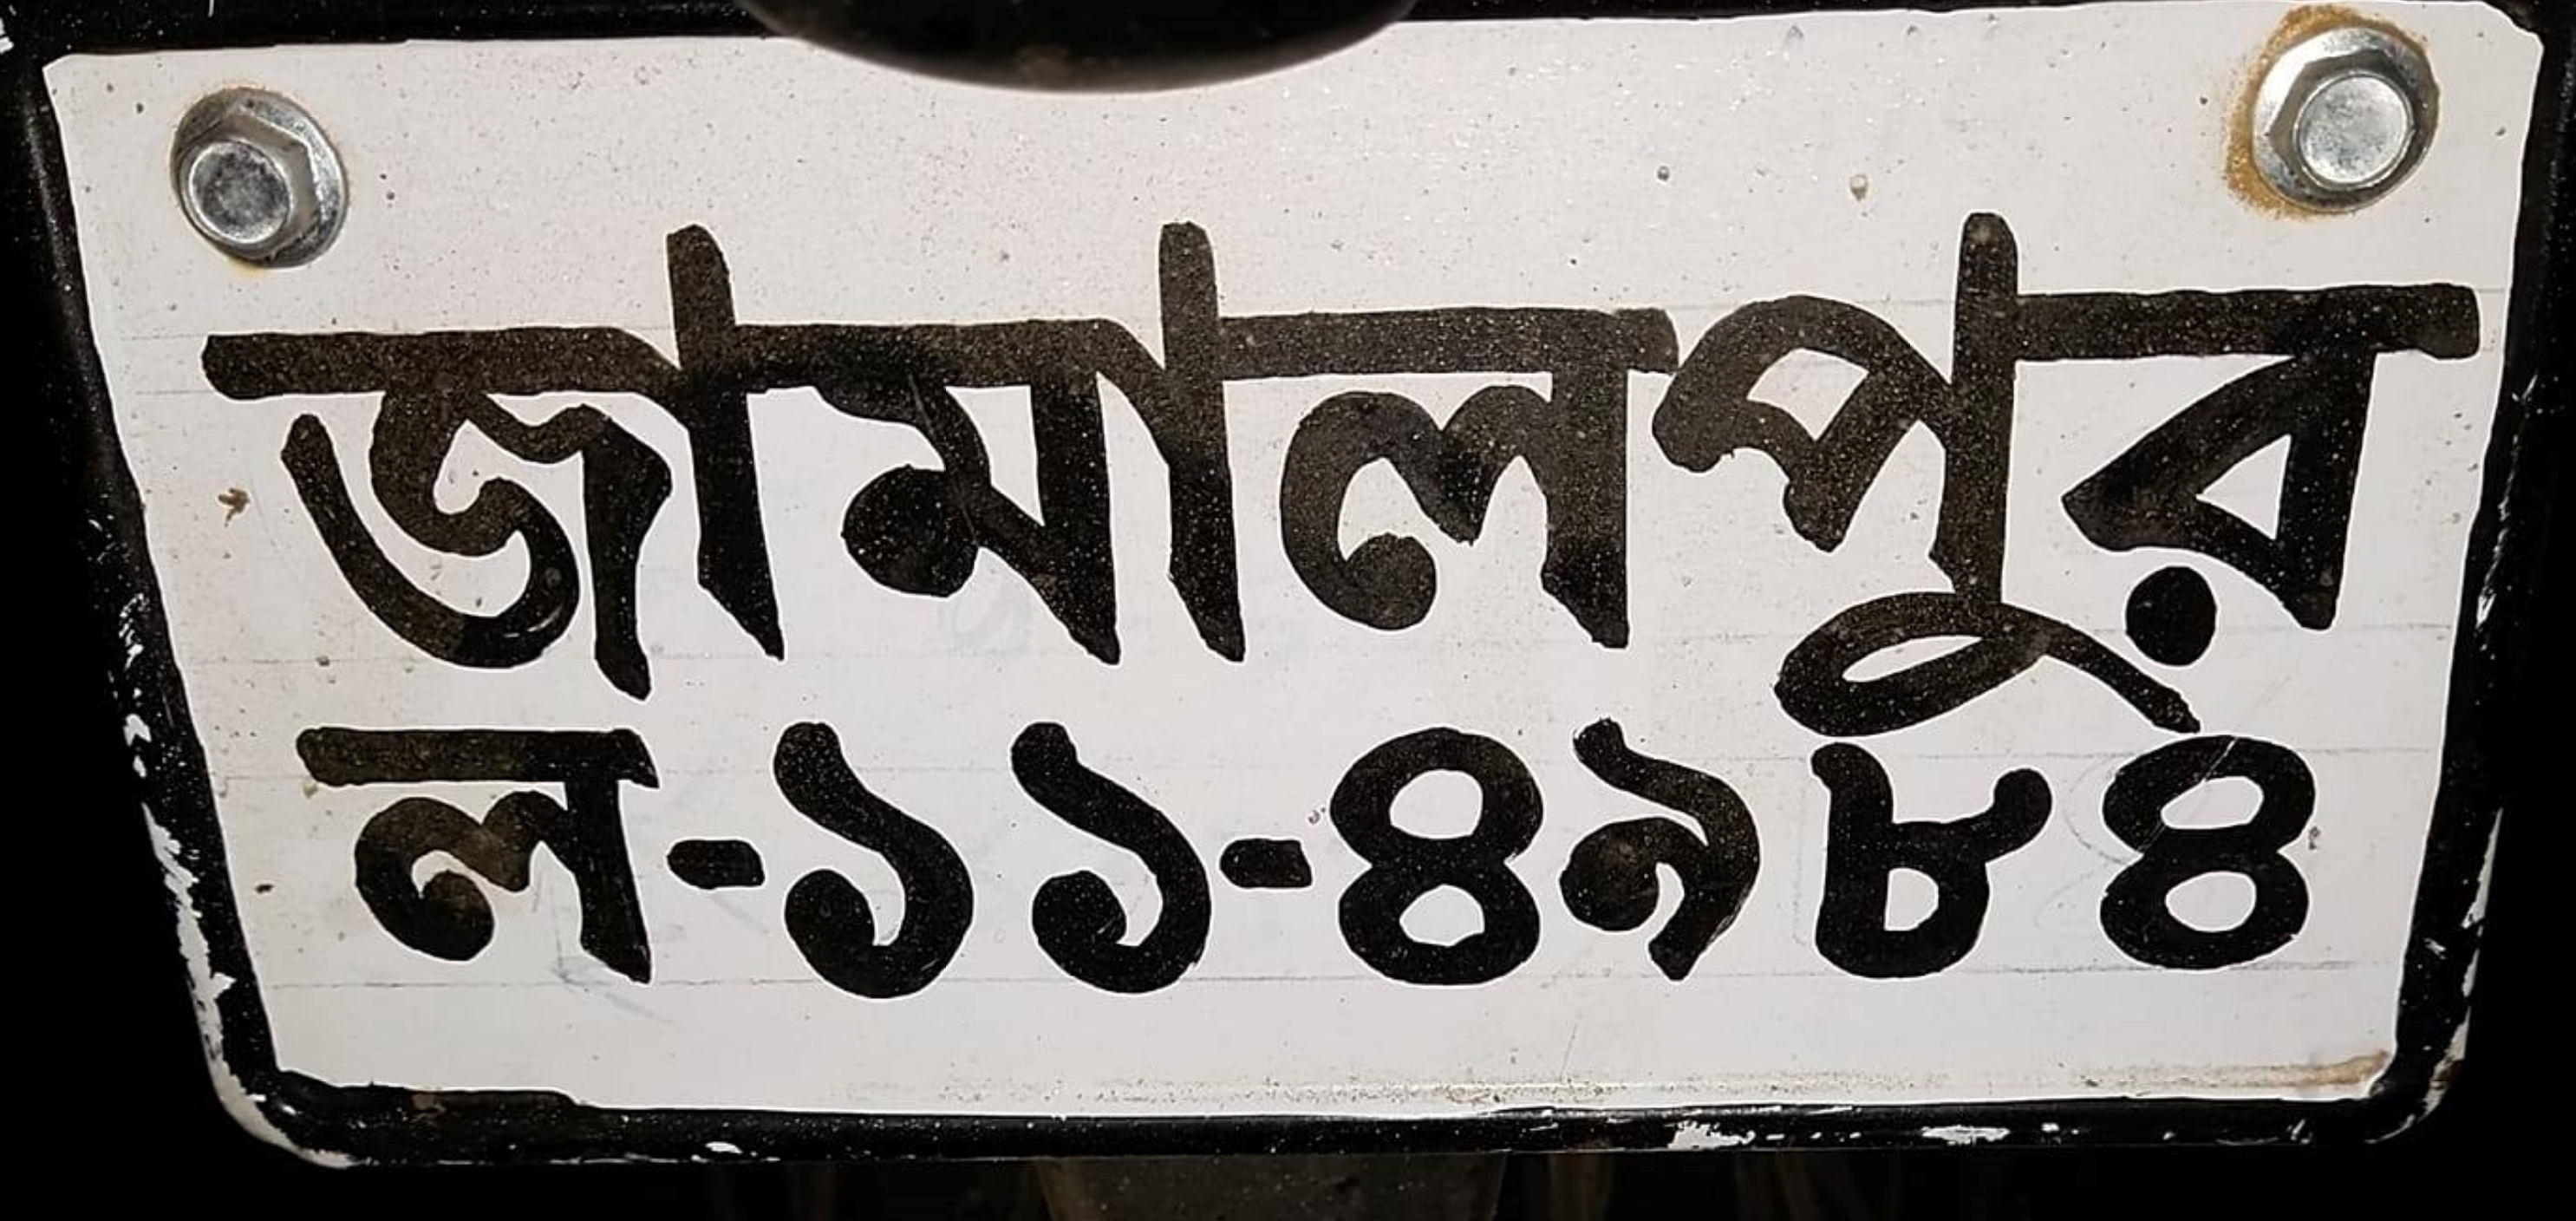 জামালপুর
ল-১১-৪৯৮৪